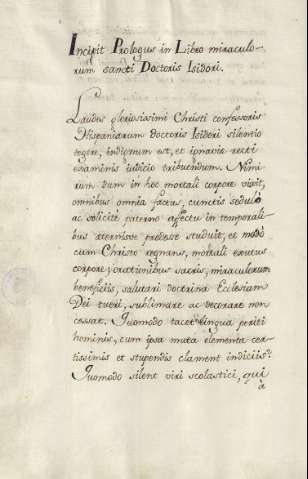 Incipit Prologus in Libro miraculo-
rum sancti Doctoris Isidori.
Laudes gloriosissimi Christi confessoris
Hispaniarum doctoris Isidori silentio
tegere, indignum est, et ignaviæ recti
examinis iudicio tribuendum. Nimi
rum dum in hoc mortali corpore vixit,
omnibus omnia factus, cunctis sedulo
ac solicite paterno affectu in temporali-
bus æternisve prodesse studuit, et modo
cum Christo regnans, mortali exutus
corpore, orationibus sacris, miraculorum
beneficiis, salutari doctrina Ecclesiam
Dei tueri, sublimare ac decorare non
cessat. Quomodo tacet lingua periti
hominis, cum ipsa muta elementa cer-
tissimis et stupendis clament indiciis?
Quomodo silent viri scolastici, qui
a